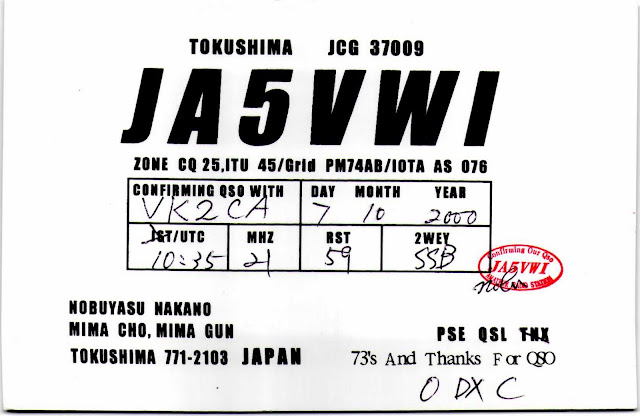 TOKUSHIMA JCG 37009
JA5VWI
ZONE CQ 25,ITU 45/Grid PM74AB/IOTA AS 076
CONFIRMING QSO WITH DAY MONTH YEAR
VK2CA 7 10 2000
JST/UTC MHZ RST 2WEY
10:35 21 59 SSB
Confirming Our Qso
JA5VWI
AMATEUR RADIO STATION
NOBUYASU NAKANO
MIMA CHO, MIMA GUN
TOKUSHIMA 771-2103 JAPAN
PSE QSL TNX
73's And Thanks For QSO
O DX C